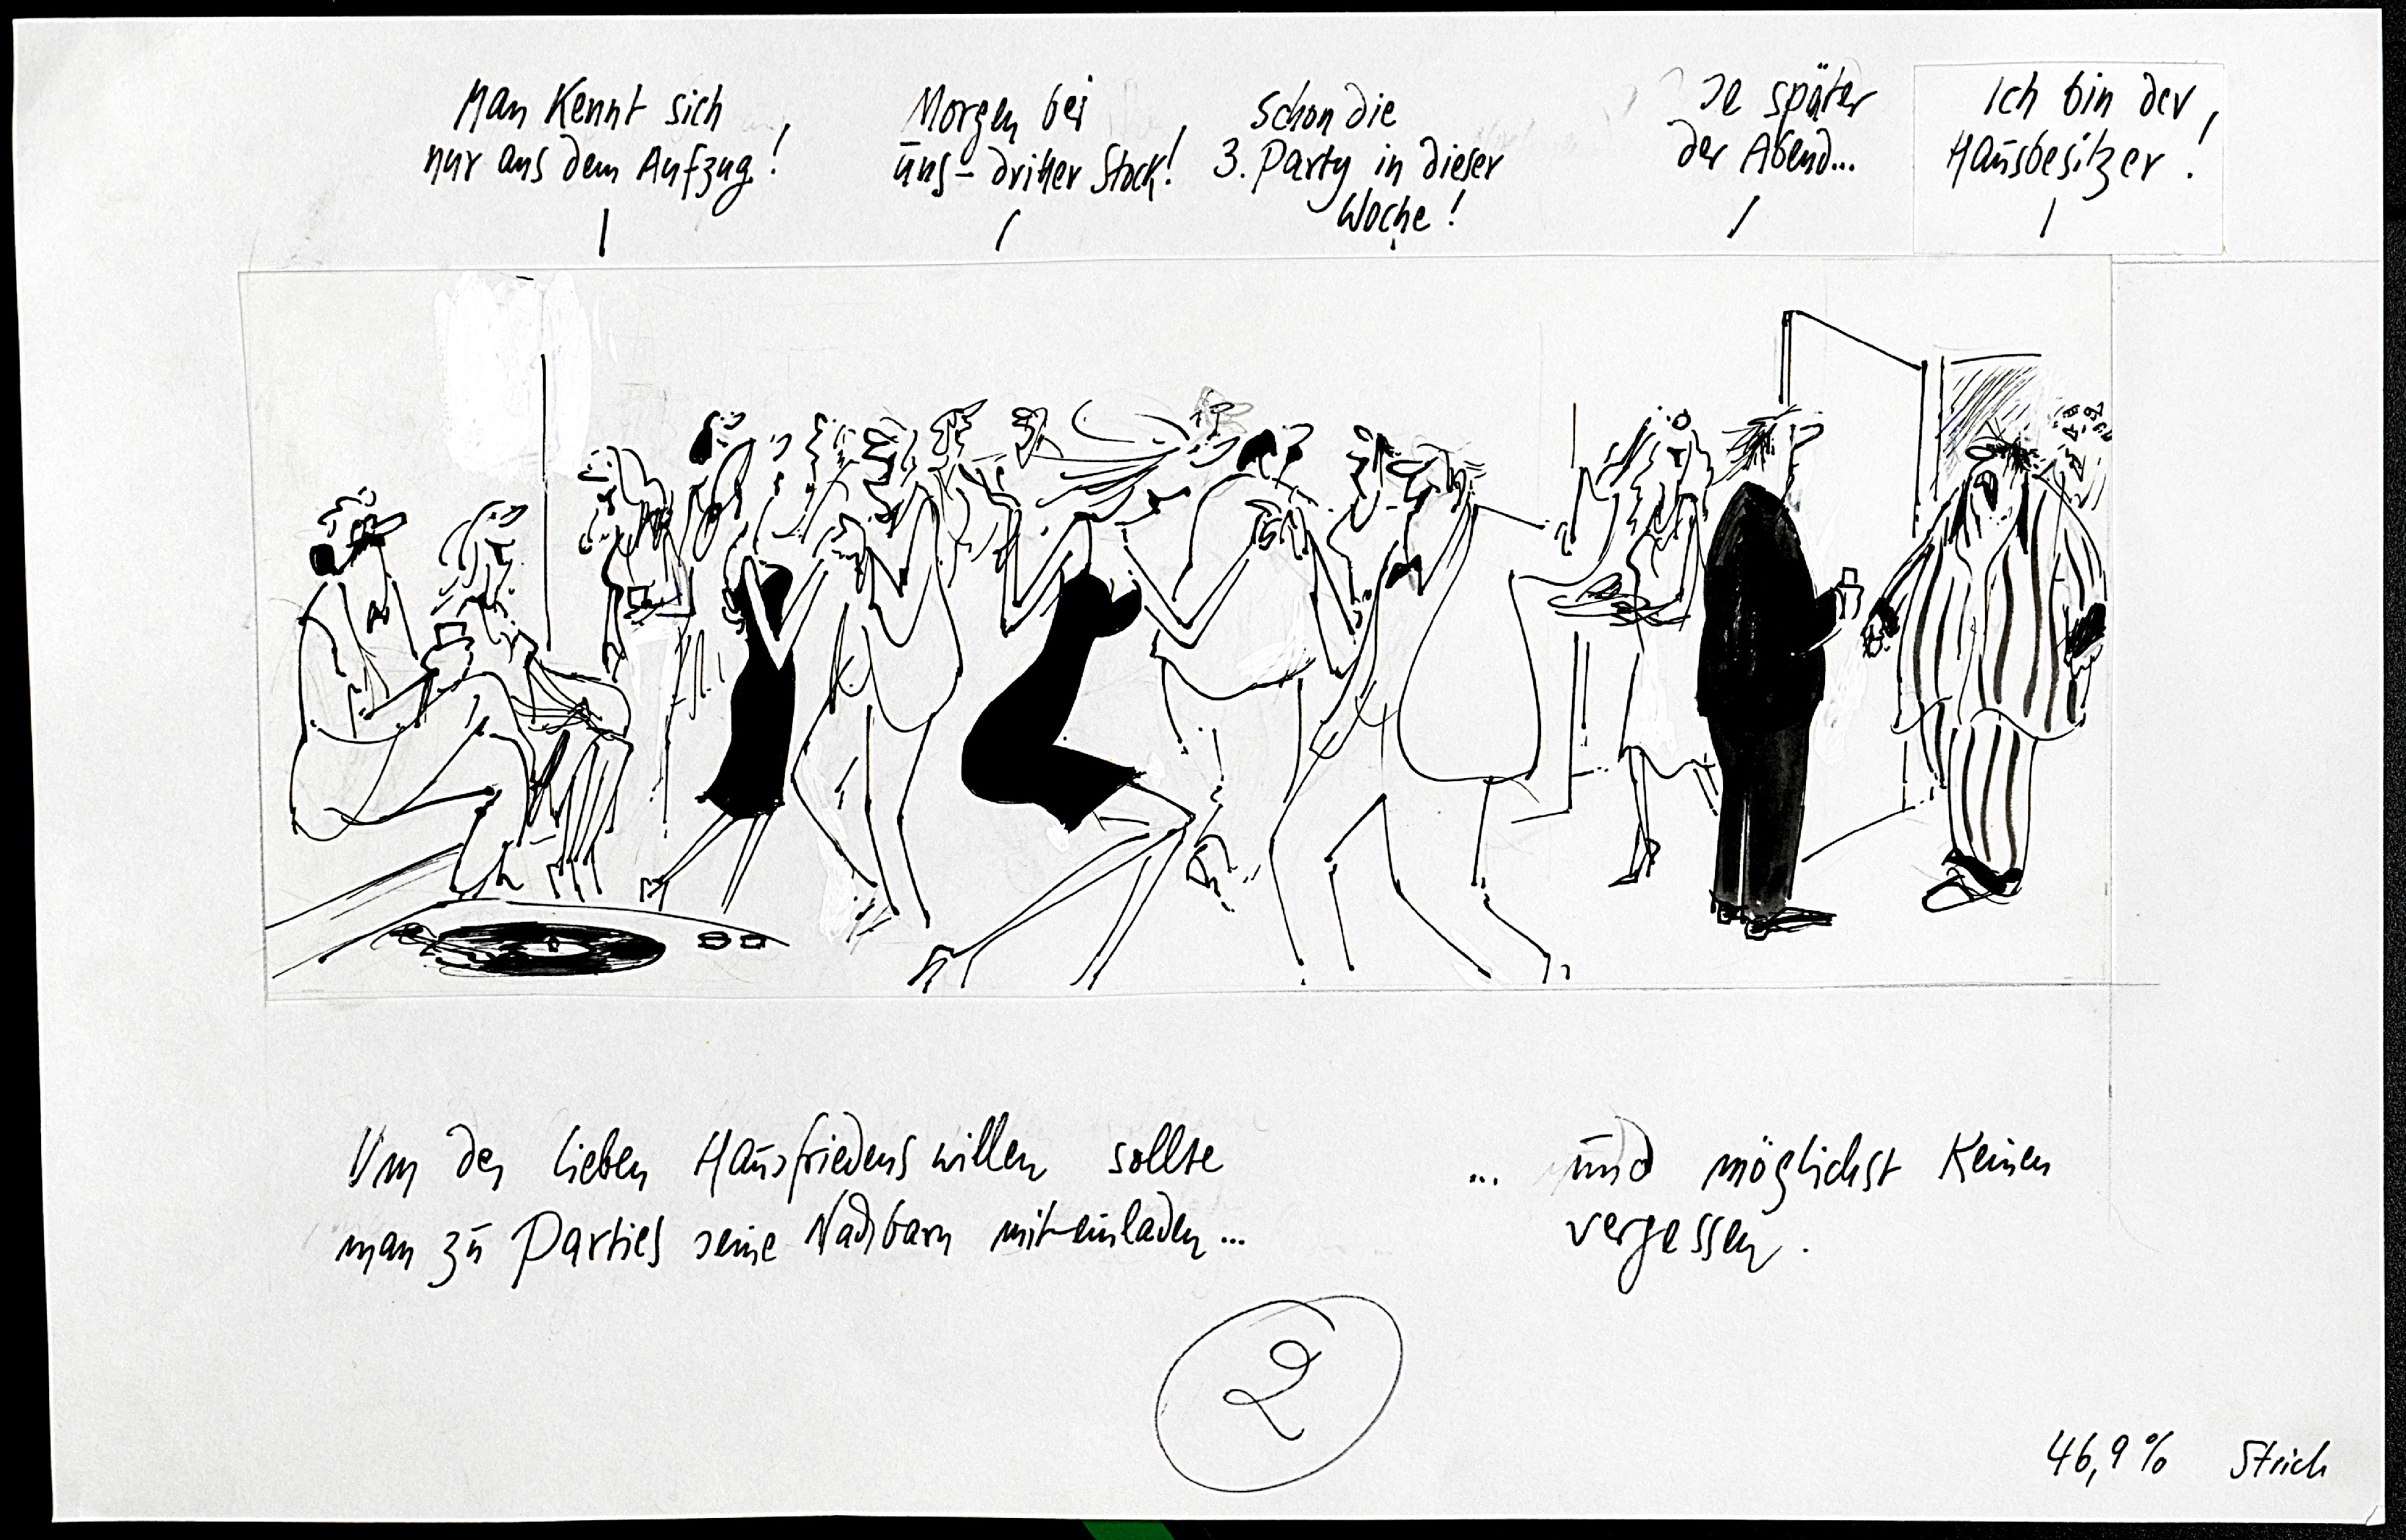 Man kennt sich
nur aus dem Aufzug!
Morgen bei
uns - dritter Stock!
Schon die
3. Party in dieser
Woche!
Je später
der Abend...
Ich bin der
Hausbesitzer!
Um des lieben Hausfriedens willen sollte
man zu Parties seine Nachbarn mit-einladen...
... und möglichst keinen
vergessen.
2
46,9% Strich